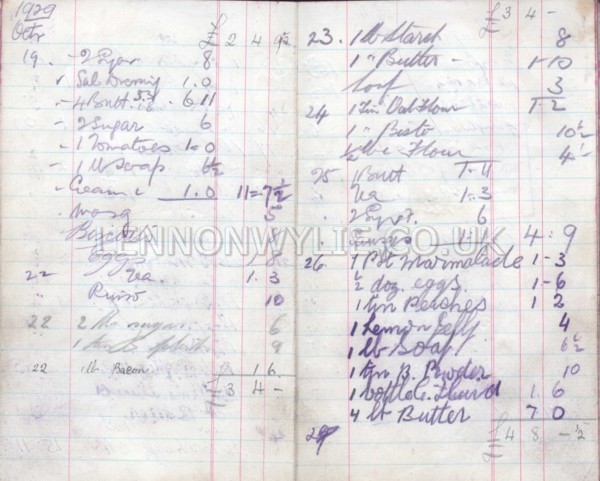 1929
Octr £ 2 4 9½
19 - 2 Syor 8
Sal Dressing 1.0
- 4 Butt 6.11
- 2 Sugar 6
- 1 Tomatoes 1-0
- 1 lb Soap 6½
- Cream c 1.0 11=7½
5
8
22 Tea 1.3
Rinso 10
22 2 lbs sugar 6
1 9
22 1 lb Bacon 1 6
£ 3 4 -
£ 3 4 -
23. 1 lb Starch 8
1 " Butter - 1-10
Loaf 3
24 1 Tin Oat Flour 1-2
1 " Bisto 10½
½ Flour 4½
25 Butt 7-11
Tea 1=3
2 6
4:9
26 1 Pot Marmalade 1-3
½ doz. eggs. 1-6
1 tin Peaches 1 2
1 Lemon Jelly 4
1 lb Soap 6½
1 tin B. Powder 10
1 bottle C. Fluid 1.6
4 lb Butter 7 0
29 £ 4 8 - ½
LENNONWYLIE.CO.UK